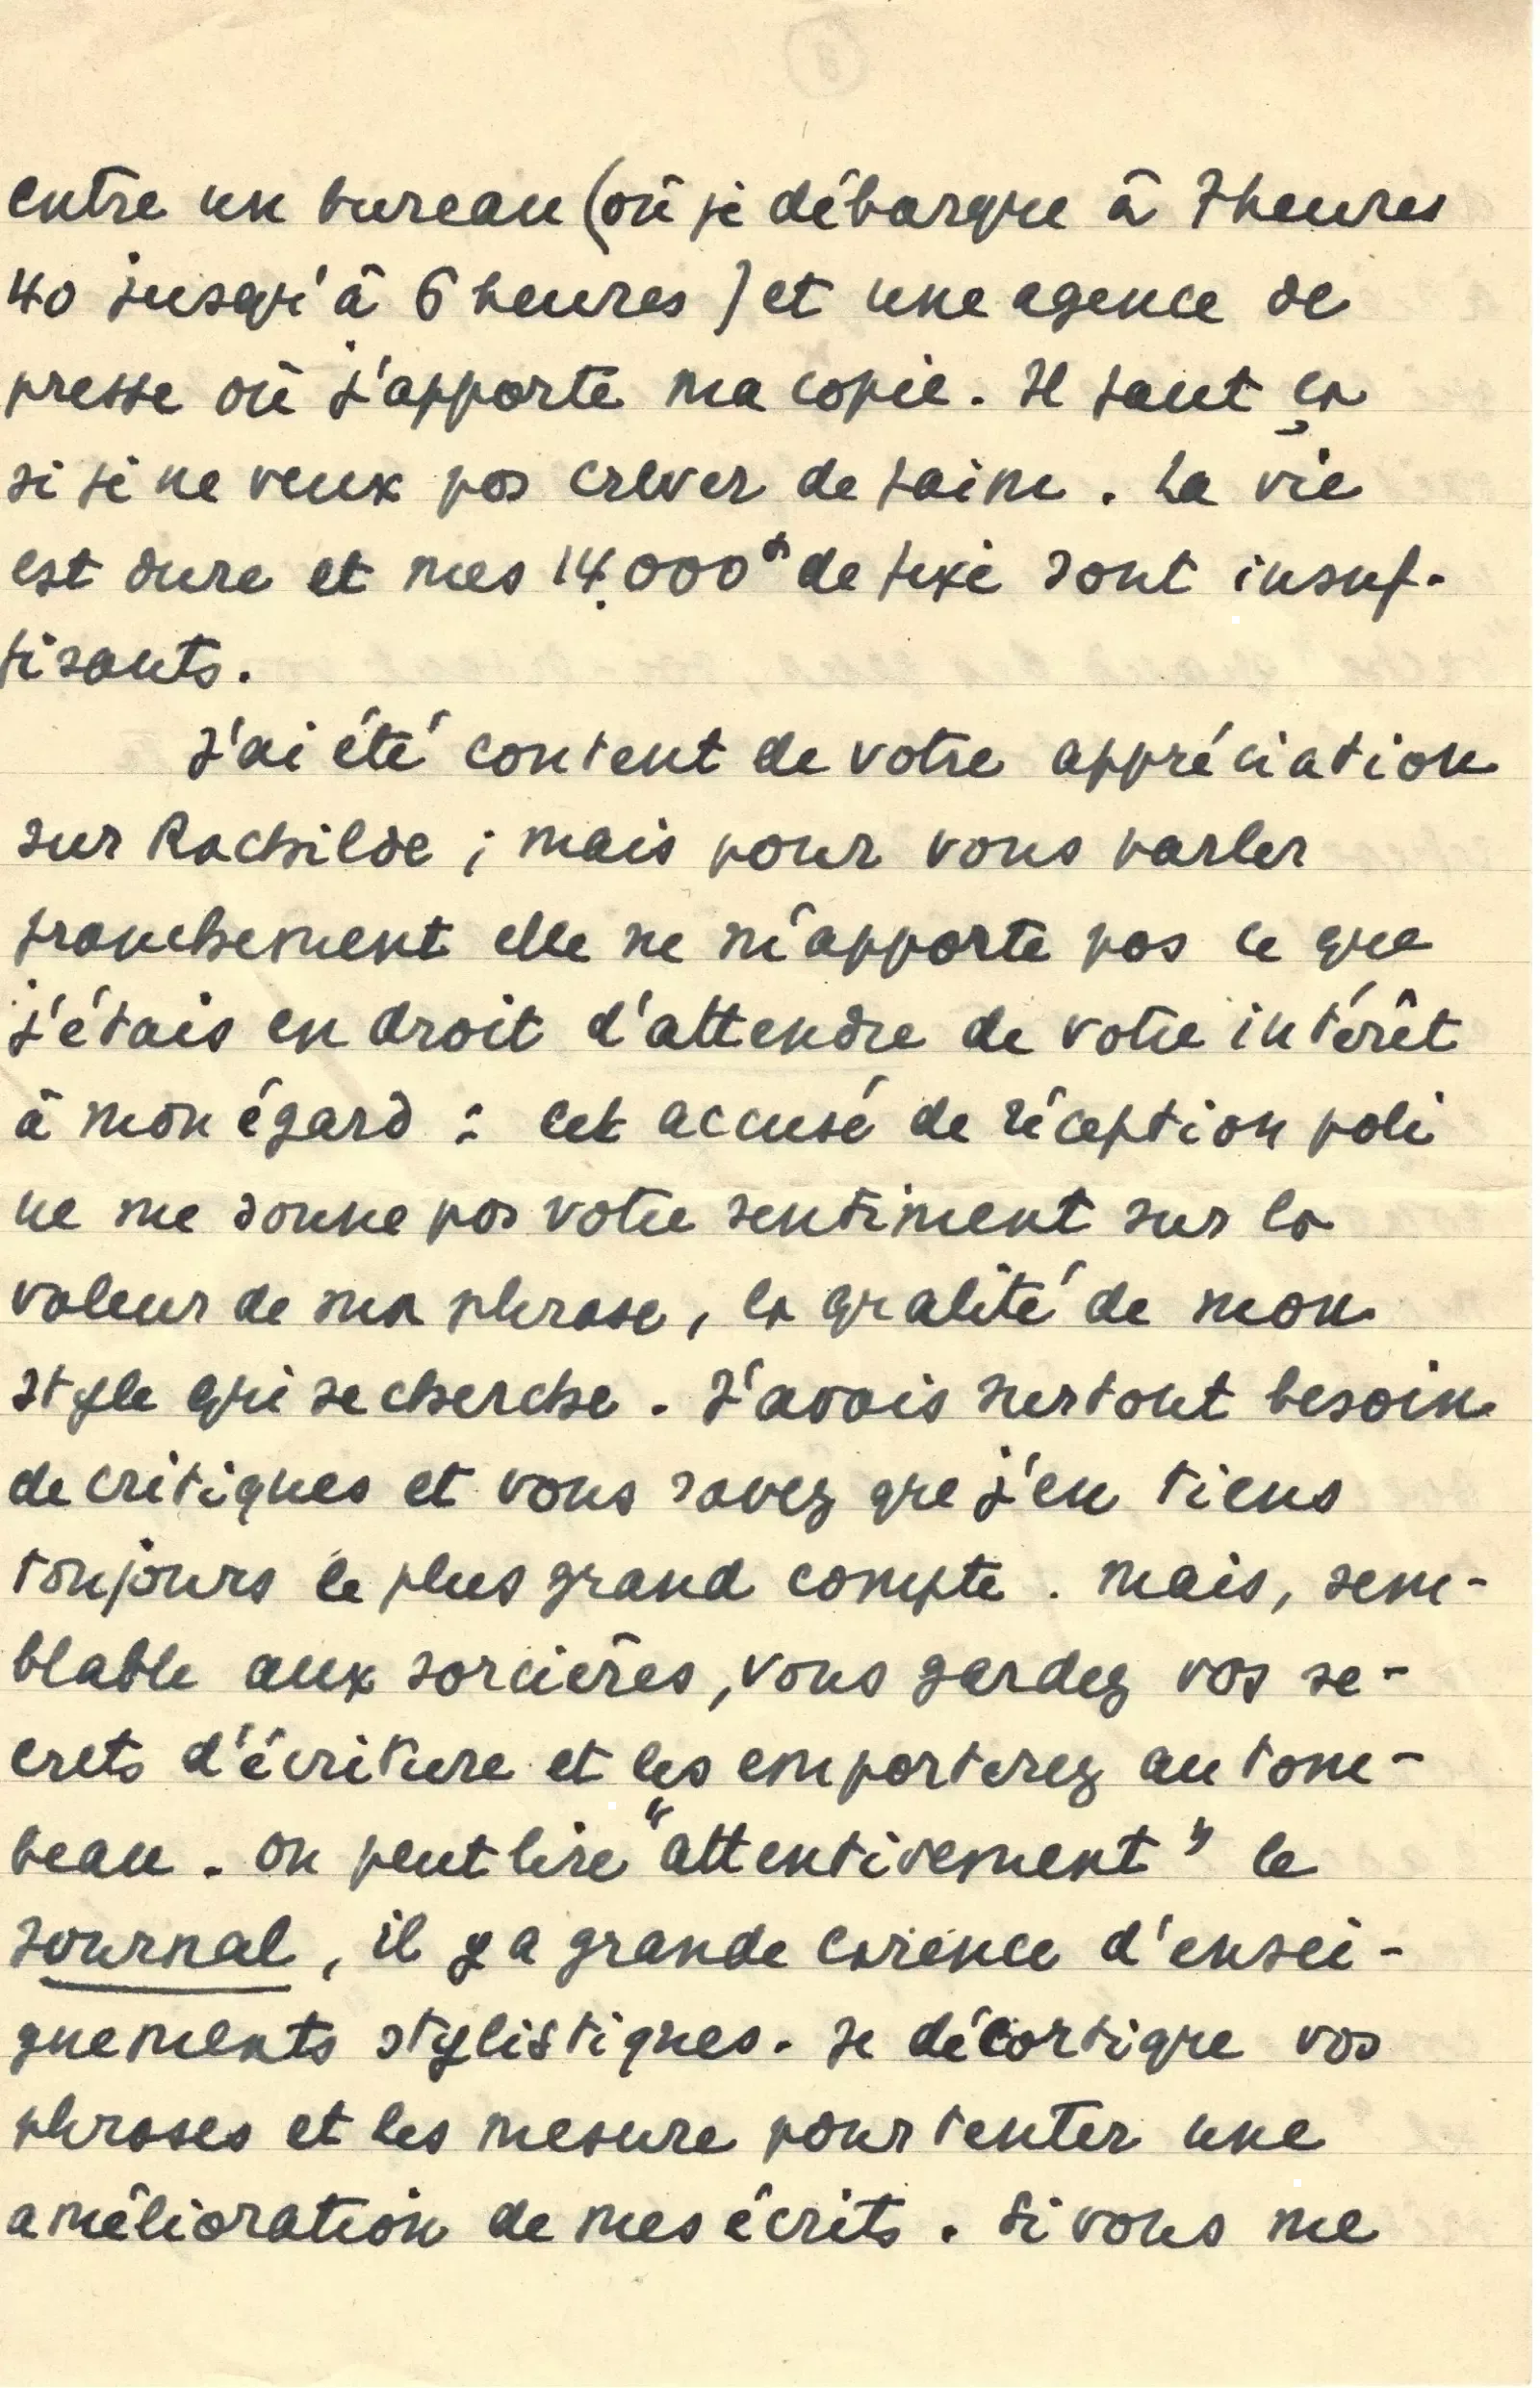 entre un bureau (où je débarque à 7 heures
40 jusqu'à 6 heures) et une agence de
presse où j'apporte ma copie. Il faut ça
si je ne veux pas crever de faim. La vie
est dure et mes 14.000 de fixe sont insuf-
fisants.
J'ai été content de votre appréciation
sur Rachilde ; mais pour vous parler
franchement elle ne m'apporte pas ce que
j'étais en droit d'attendre de votre intérêt
à mon égard : cet accusé de réception poli
ne me donne pas votre sentiment sur la
valeur de ma phrase, la qualité de mon
style qui se cherche. J'avais surtout besoin
de critiques et vous savez que j'en tiens
toujours le plus grand compte. Mais, sem-
blable aux sorcières, vous gardez vos se-
crets d'écriture et les emporterez au tom-
beau. On peut lire "attentivement" le
Journal, il y a grande carence d'ensei-
gnements stylistiques. Je décortique vos
phrases et les mesure pour tenter une
amélioration de mes écrits. Si vous me